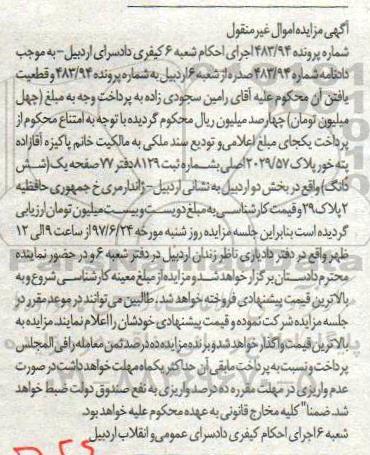 آگهی مزایده اموال غیر منقول
شماره پرونده ۴۸۳/۹۴ اجرای احکام شعبه ۶ کیفری دادسرای اردبیل - به موجب
دادنامه شماره ۴۸۳/۹۴ صدره از شعبه ۶ اردبیل به شماره پرونده ۴۸۳/۹۴ و قطعیت
یافتن آن محکوم علیه آقای رامین سجودی زاده به پرداخت وجه به مبلغ (چهل
میلیون تومان) چهارصد میلیون ریال محکوم گردیده با توجه به امتناع محکوم از
پرداخت یکجای مبلغ اعلامی و تودیع سند ملکی به مالکیت خانم پاکیزه آقازاده
پته خور پلاک ۲۰۲۹/۵۷ اصلی بشماره ثبت ۸۱۲۹ دفتر ۷۷ صفحه یک (شش
دانگ) واقع در بخش دو اردبیل به نشانی اردبیل - ژاندارمری خ جمهوری حافظیه
۲ پلاک ۲۹ و قیمت کارشناسی به مبلغ دویست و بیست میلیون تومان ارزیابی
گردیده است بنابراین جلسه مزایده روز شنبه مورخه ۹۷/۶/۲۴ از ساعت ۹ الی ۱۲
ظهر واقع در دفتر دادیاری ناظر زندان اردبیل در دفتر شعبه ۶ و در حضور نماینده
محترم دادستان برگزار خواهد شد و مزایده از مبلغ معینه کارشناسی شروع و به
بالاترین قیمت پیشنهادی فروخته خواهد شد، طالبین می توانند در موعد مقرر در
جلسه مزایده شرکت نموده و قیمت پیشنهادی خودشان را اعلام نمایند. مزایده به
بالاترین قیمت واگذار خواهد شد و برنده مزایده ده درصد ثمن معامله را فی المجلس
پرداخت و نسبت به پرداخت مابقی آن حداکثر یکماه مهلت خواهد داشت در صورت
عدم واریزی در مهلت مقرره ده درصد واریزی به نفع صندوق دولت ضبط خواهد
شد. ضمنا" کلیه مخارج قانونی به عهده محکوم علیه خواهد بود.
شعبه ۶ اجرای احکام کیفری دادسرای عمومی و انقلاب اردبیل